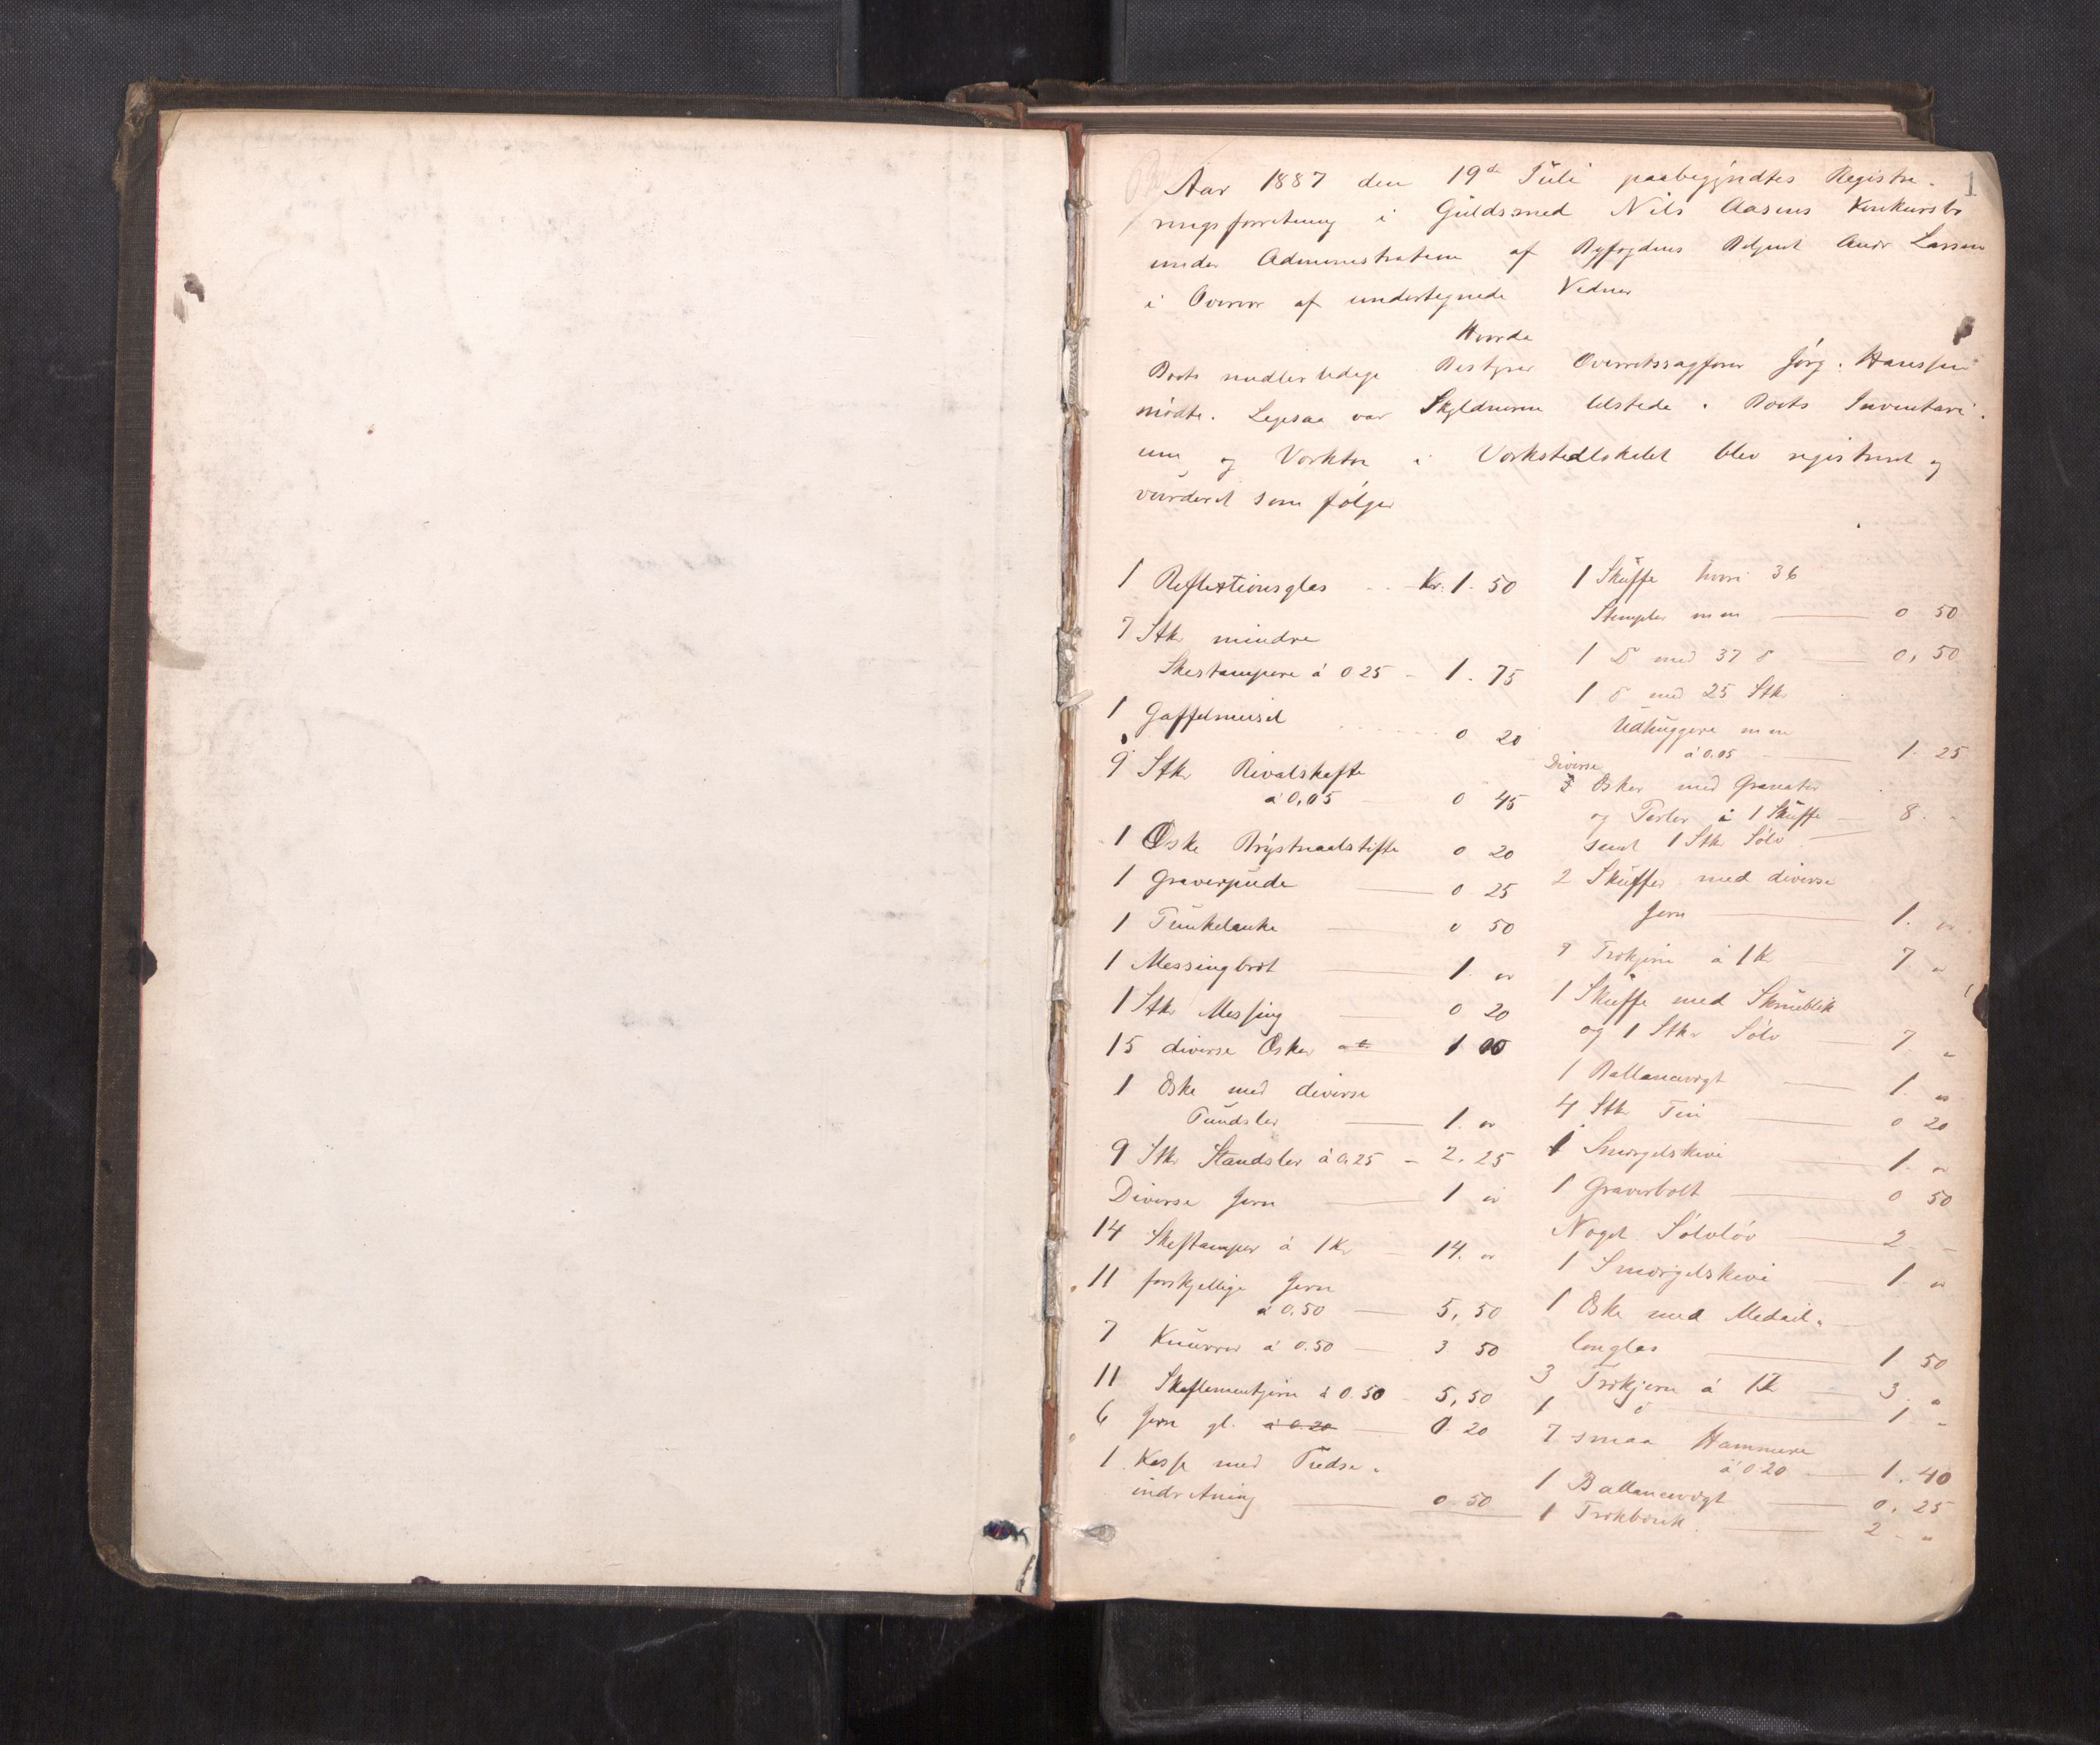 1
Aar 1887 den 19de Juli paabegyndtes Registre-
ringsforretning i Guldsmed Nils Aasens Konkursbo
under Administration af Byfogdens Betjent Andr Larsen
i Overvær af undertegnede Vidner
Hvorda
Boets midlertidige Bestyrer Overretssagfører Jørg. Hanssen
mødte. Ligesaa var Skyldneren tilstede. Boets Inventari-
um og Værktøi i Værkstedlokalet blev registreret og
vurderet som følger
1 Reflektionsglas Kr. 1. 50
7 Stkr mindre
Skestampere á 0 25 - 1. 75
1 Gaffelmeisel 0 20
9 Stkr Rivalskafte
á 0,05 0 45
1 Æske Brystnaalstifte 0 20
1 Graverpude 0 25
1 0 50
1 Messingbræt 1. "
1 Stkr Messing 0 20
15 diverse Æsker 1 00
1 Æske med diverse
Pundsler 1. "
9 Stkr Standsler á 0.25 - 2.25
Diverse Jern 1 "
14 Skestamper á 1 Kr 14. "
11 forskjellige Jern
á 0.50 5,50
7 Knurrer á 0.50 3 50
11 á 0.50 5,50
6 Jern gl. á 0.20 0. 20
1 Kasse med
indretning 0 50
1 Skuffe hvori 36
Stempler m m 0 50
1 D med 37 D 0,50
1 D med 25 Stkr
Udhuggere m m
á 0.05 1. 25
Diverse
Æsker med Granater
og Perler i 1 Skuffe 8. "
samt 1 Stkr Sølv
2 Skuffer med diverse
Jern 1. "
7 Trækjern á 1 Kr 7 "
1 Skuffe med Skrueblik
og 1 Stkr Sølv 7 "
1 Ballancevægt 1. "
4 Stkr Tin 0 20
1 Smergelskive 1. "
1 Graverbolt 0 50
Noget Sølvløv 2 -
1 Smergelskive 1. "
1 Æske med Medail-
longlas 1 50
3 Trækjern á 1 K 3. "
1 D 1 "
7 smaa Hammere
á 0.20 1.40
1 Ballancevægt 0,25
1 Trækbænk 2 - "